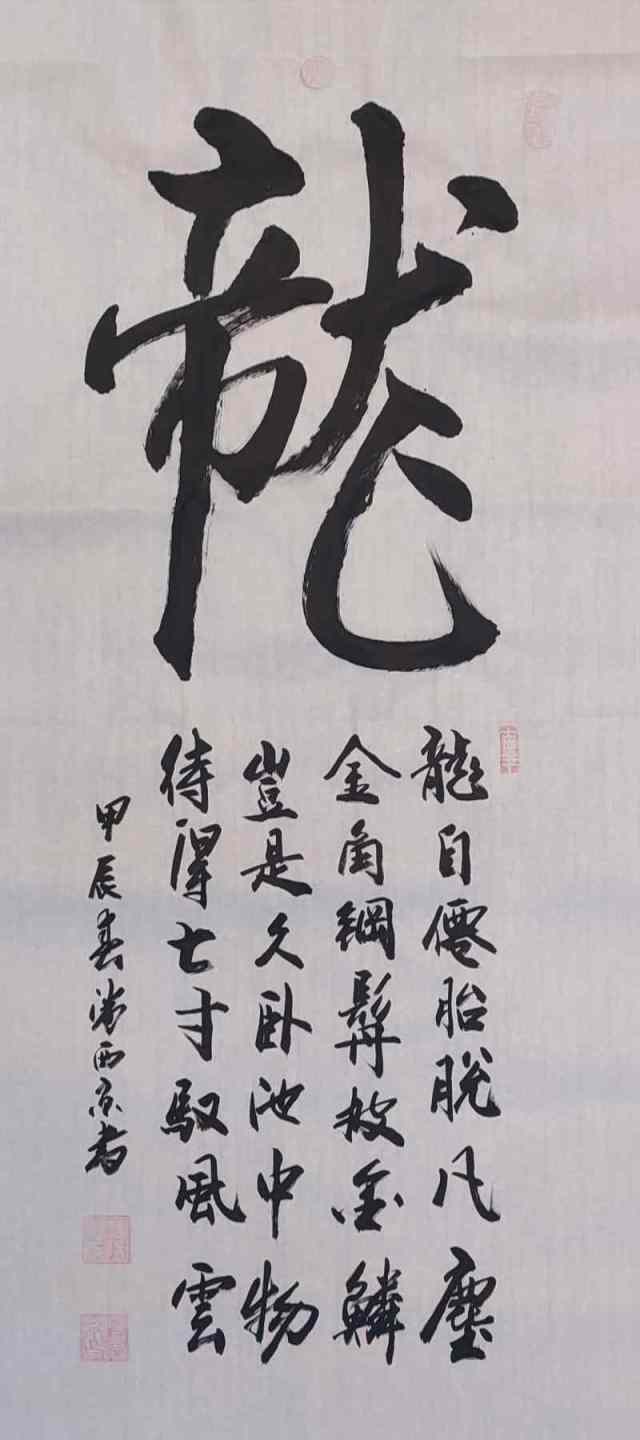 龍
龍自僊胎脫凡塵
金角綱髯披金鱗
豈是久卧池中物
待得七寸馭風雲
甲辰春西京書